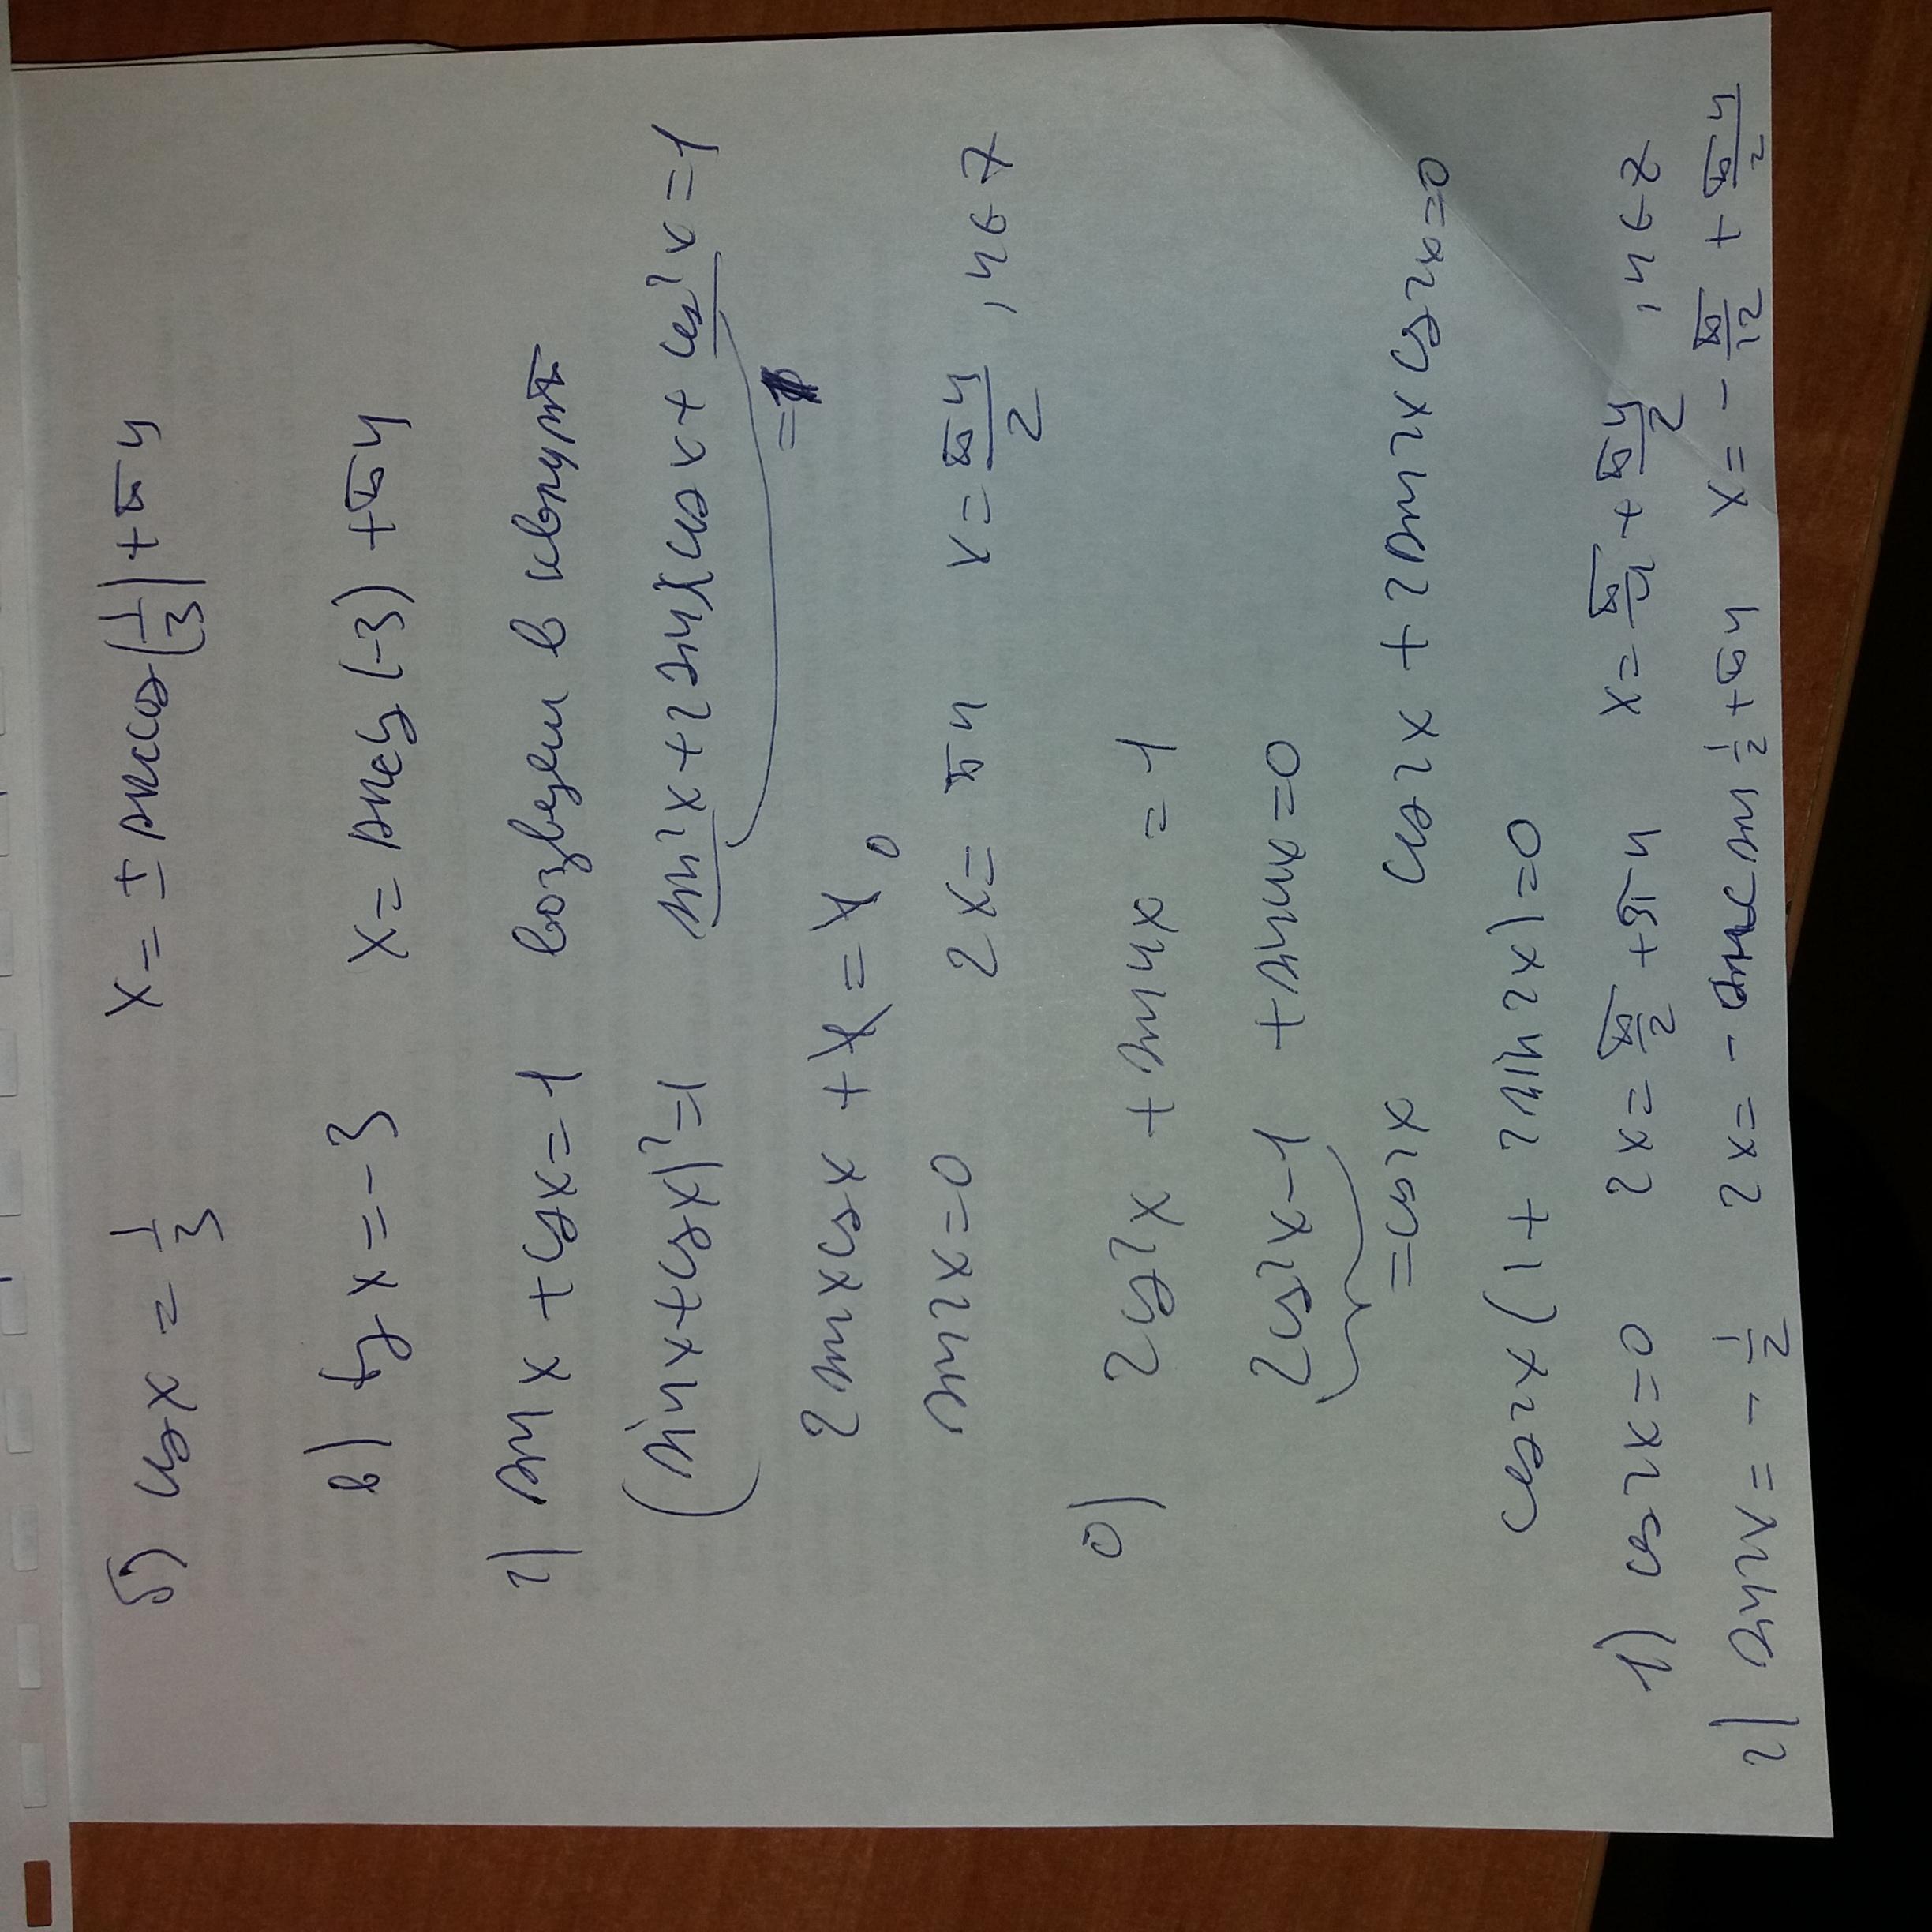 б) cosx = 1/3   x = ± arccos(1/3) + πn
в) tg x = -3   x = arctg(-3) + πn
г) sin x + cosx = 1   возведем в квадрат
(sinx+cosx)²=1   sin²x + 2sinx cosx + cos²x = 1
=1
2sinxcosx + 1 = 1   0
sin2x=0   2x = πn   x = πn/2, n∈Z
2cos²x + sin4x = 1
2cos²x-1 + sin4x=0
=cos2x   cos2x + 2sin2x cos2x=0
cos2x(1 + 2sin2x)=0
1) cos2x=0   2x = π/2 + πn   x = π/4 + πn/2, n∈Z
2) sin2x = -1/2   2x = - arcsin 1/2 + πn   x = - π/12 + πn/2